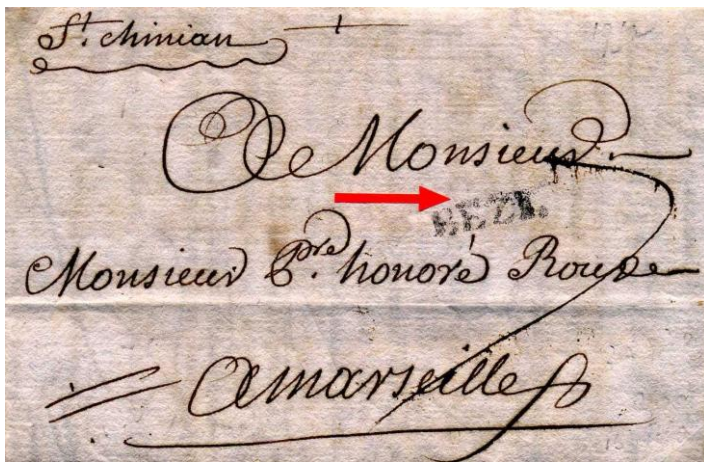 St. chinian
A Monsieur
BEZI.
Monsieur Pre. honoré Roux
A marseille